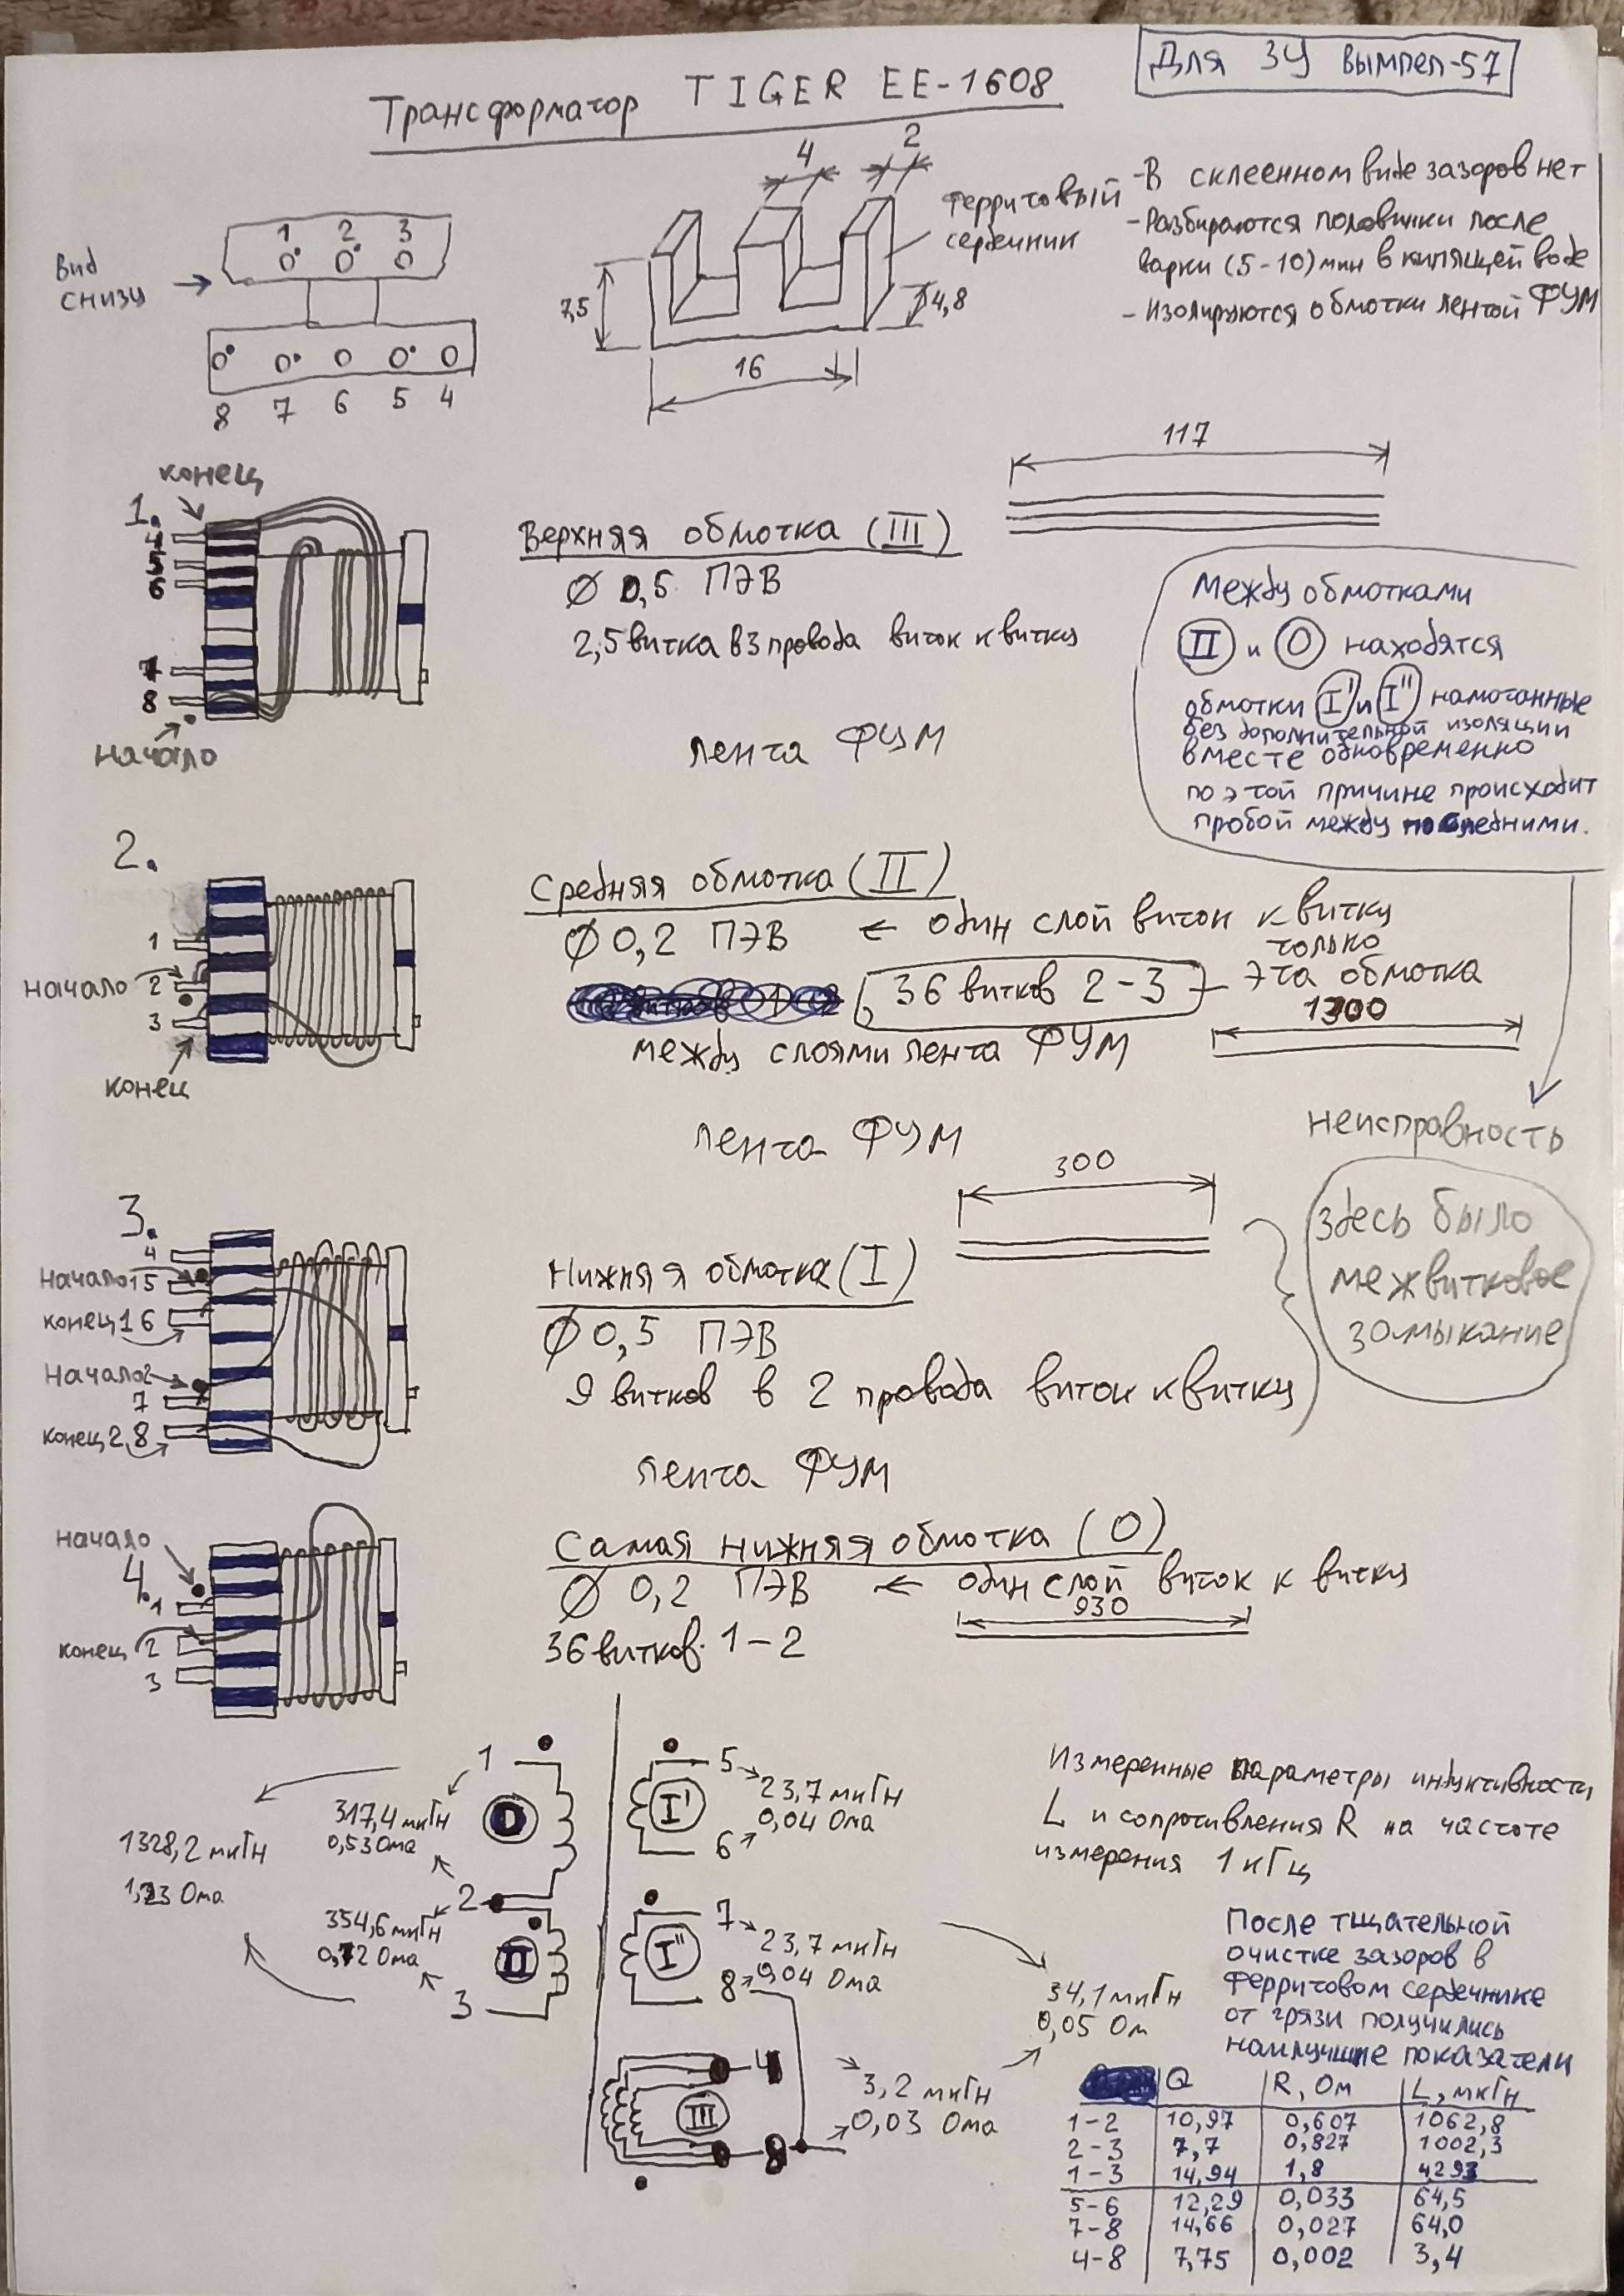 Для ЗУ Вымпел-57
Трансформатор TIGER EE-1608
Вид
снизу
1 2 3
8 7 6 5 4
4
2
7,5
4,8
16
Ферритовый
сердечник
-В склеенном виде зазоров нет
-Разбираются половинки после
варки (5-10) мин в кипящей воде
- Изолируются обмотки лентой ФУМ
1.
конец
4
5
6
7
8
начало
Верхняя обмотка (III)
Ø 0,5 ПЭВ
2,5 витка в 3 провода виток к витку
117
лента ФУМ
Между обмотками
II и O находятся
обмотки I' и I'' намотанные
без дополнительной изоляции
вместе одновременно
по этой причине происходит
пробой между последними.
2.
1
начало 2
3
конец
Средняя обмотка (II)
Ø 0,2 ПЭВ ← один слой виток к витку
36 витков 2-3
только
эта обмотка
1300
между слоями лента ФУМ
лента ФУМ
неисправность
здесь было
межвитковое
замыкание
3.
4
Начало1 5
конец1 6
Начало2
7
конец2 8
300
Нижняя обмотка (I)
Ø 0,5 ПЭВ
9 витков в 2 провода виток к витку
лента ФУМ
начало
4.
1
конец 2
3
Самая нижняя обмотка (O)
Ø 0,2 ПЭВ ← один слой виток к витку
930
36 витков 1-2
1
O
317,4 мкГн
0,53 Ома
1328,2 мкГн
1,23 Ома
2
354,6 мкГн
0,72 Ома
II
3
I'
5
23,7 мкГн
0,04 Ома
6
I''
7
23,7 мкГн
0,04 Ома
8
34,1 мкГн
0,05 Ом
III
4
3,2 мкГн
0,03 Ома
8
Измеренные параметры индуктивности
L и сопротивления R на частоте
измерения 1 кГц
После тщательной
очистке зазоров в
Ферритовом сердечнике
от грязи получились
наилучшие показатели
Q R, Ом L, мкГн
1-2 10,97 0,607 1062,8
2-3 7,7 0,827 1002,3
1-3 14,94 1,8 4293
5-6 12,29 0,033 64,5
7-8 14,66 0,027 64,0
4-8 7,75 0,002 3,4